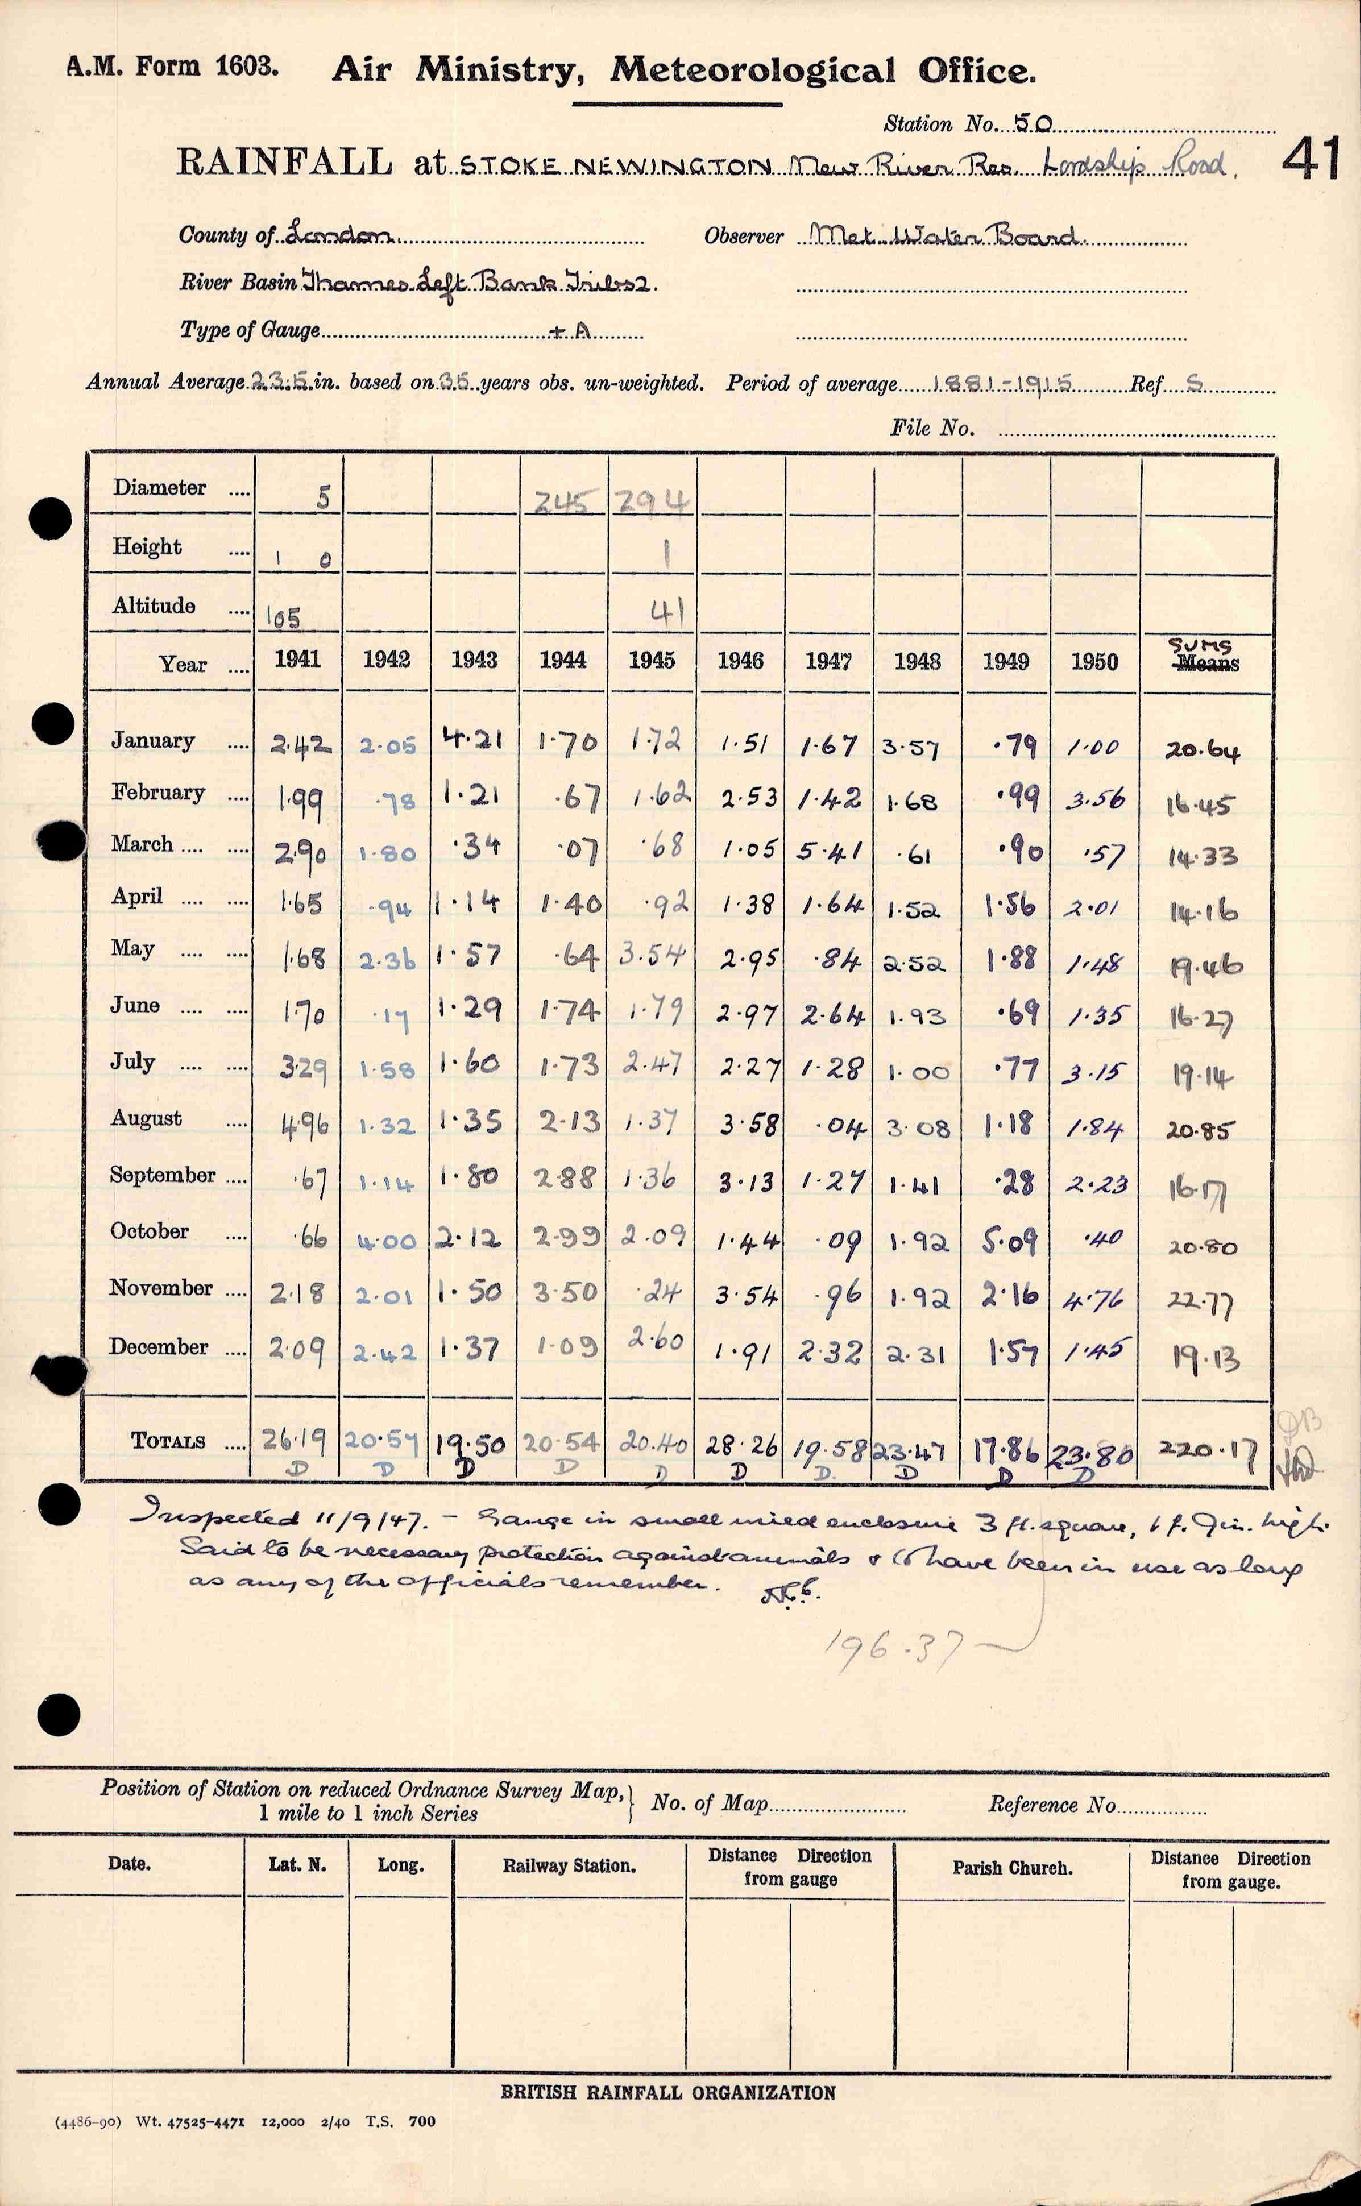 A.M. Form 1603. Air Ministry, Meteorological Office.
Station No. 50
RAINFALL at STOKE NEWINGTON New River Res. Lordship Road. 41
County of London Observer Met. Water Board.
River Basin Thames Left Bank Tribs 2.
Type of Gauge + A
Annual Average 23.5 in. based on 35 years obs. un-weighted. Period of average 1881-1915 Ref. S
File No.
Diameter .... 5 245 294
Height .... 1 0 1
Altitude .... 105 41
SUMS
Year .... 1941 1942 1943 1944 1945 1946 1947 1948 1949 1950 Means
January .... 2.42 2.05 4.21 1.70 1.72 1.51 1.67 3.57 .79 1.00 20.64
February .... 1.99 .78 1.21 .67 1.62 2.53 1.42 1.68 .99 3.56 16.45
March .... .... 2.90 1.80 .34 .07 .68 1.05 5.41 .61 .90 .57 14.33
April .... .... 1.65 .94 1.14 1.40 .92 1.38 1.64 1.52 1.56 2.01 14.16
May .... .... 1.68 2.36 1.57 .64 3.54 2.95 .84 2.52 1.88 1.48 19.46
June .... .... 1.70 .17 1.29 1.74 1.79 2.97 2.64 1.93 .69 1.35 16.27
July .... .... 3.29 1.58 1.60 1.73 2.47 2.27 1.28 1.00 .77 3.15 19.14
August .... 4.96 1.32 1.35 2.13 1.37 3.58 .04 3.08 1.18 1.84 20.85
September .... .67 1.14 1.80 2.88 1.36 3.13 1.27 1.41 .28 2.23 16.17
October .... .66 4.00 2.12 2.99 2.09 1.44 .09 1.92 5.09 .40 20.80
November .... 2.18 2.01 1.50 3.50 .24 3.54 .96 1.92 2.16 4.76 22.77
December .... 2.09 2.42 1.37 1.09 2.60 1.91 2.32 2.31 1.57 1.45 19.13
TOTALS .... 26.19 20.57 19.50 20.54 20.40 28.26 19.58 23.47 17.86 23.80 220.17
D D D D D D D D D D
Inspected 11/9/47. - Gauge in small wired enclosure 3 ft. square, 1 ft. 9 in. high.
Said to be necessary protection against animals & to have been in use as long
as any of the officials remember.
196.37
Position of Station on reduced Ordnance Survey Map, } No. of Map Reference No.
1 mile to 1 inch Series
Date. Lat. N. Long. Railway Station. Distance Direction from gauge Parish Church. Distance Direction from gauge.
BRITISH RAINFALL ORGANIZATION
(4486-90) Wt. 47525-4471 12,000 2/40 T.S. 700